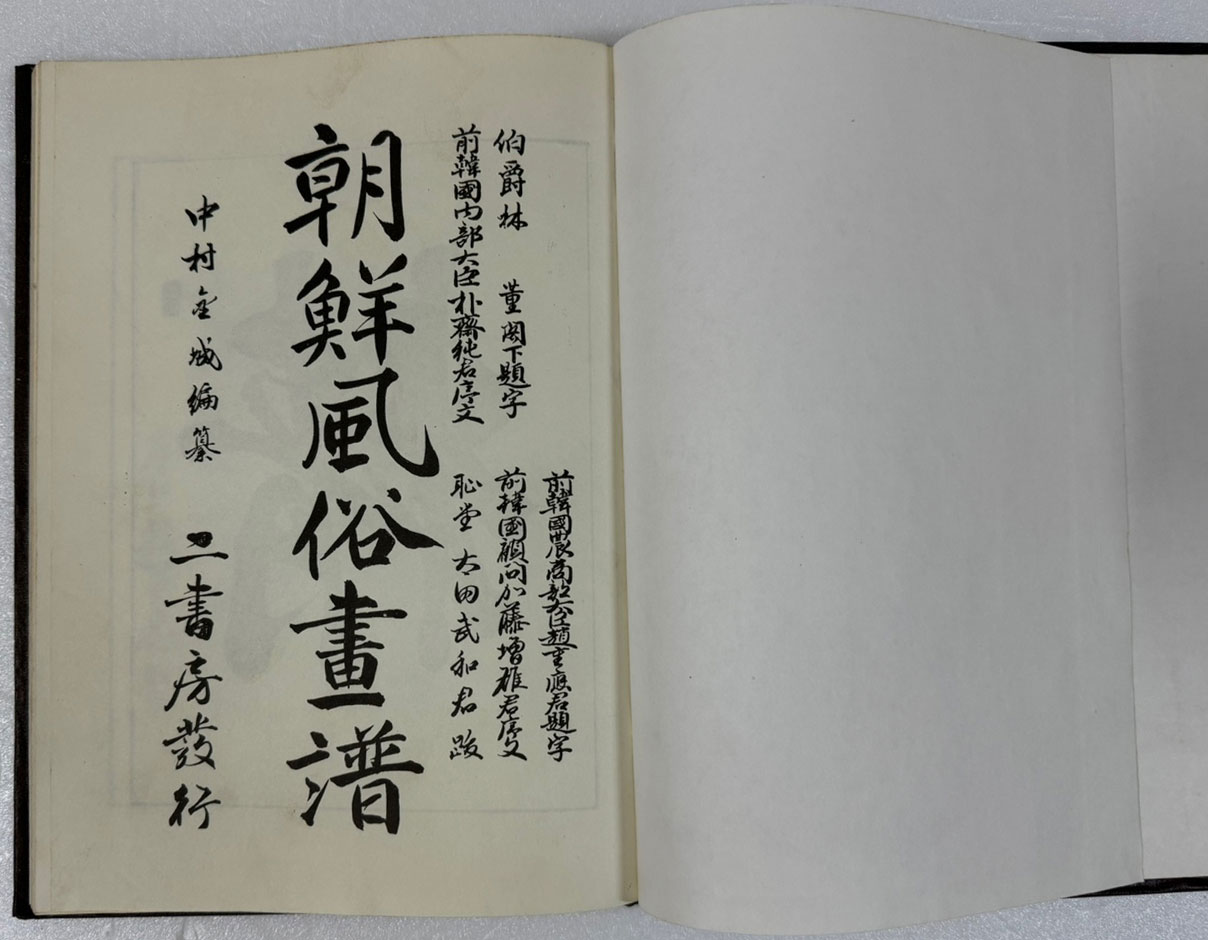 伯爵林　董閣下題字
前韓國内部大臣朴齊純君序文
前韓國農商部大臣趙重應君題字
前韓國顧問加藤增雄君序文
恥堂 太田武和君 跋
朝鮮風俗畫譜
中村金城編纂
二書房發行